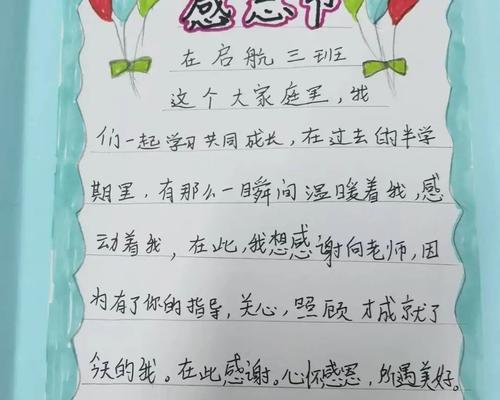 感恩节
在启航三班
这个大家庭里，我
们一起学习共同成长，在过去的半学
期里，有那么一瞬间温暖着我，感
动着我，在此，我想感谢向老师，因
为有了你的指导，关心，照顾才成就了
今天的我。在此感谢。心怀感恩，所遇美好。